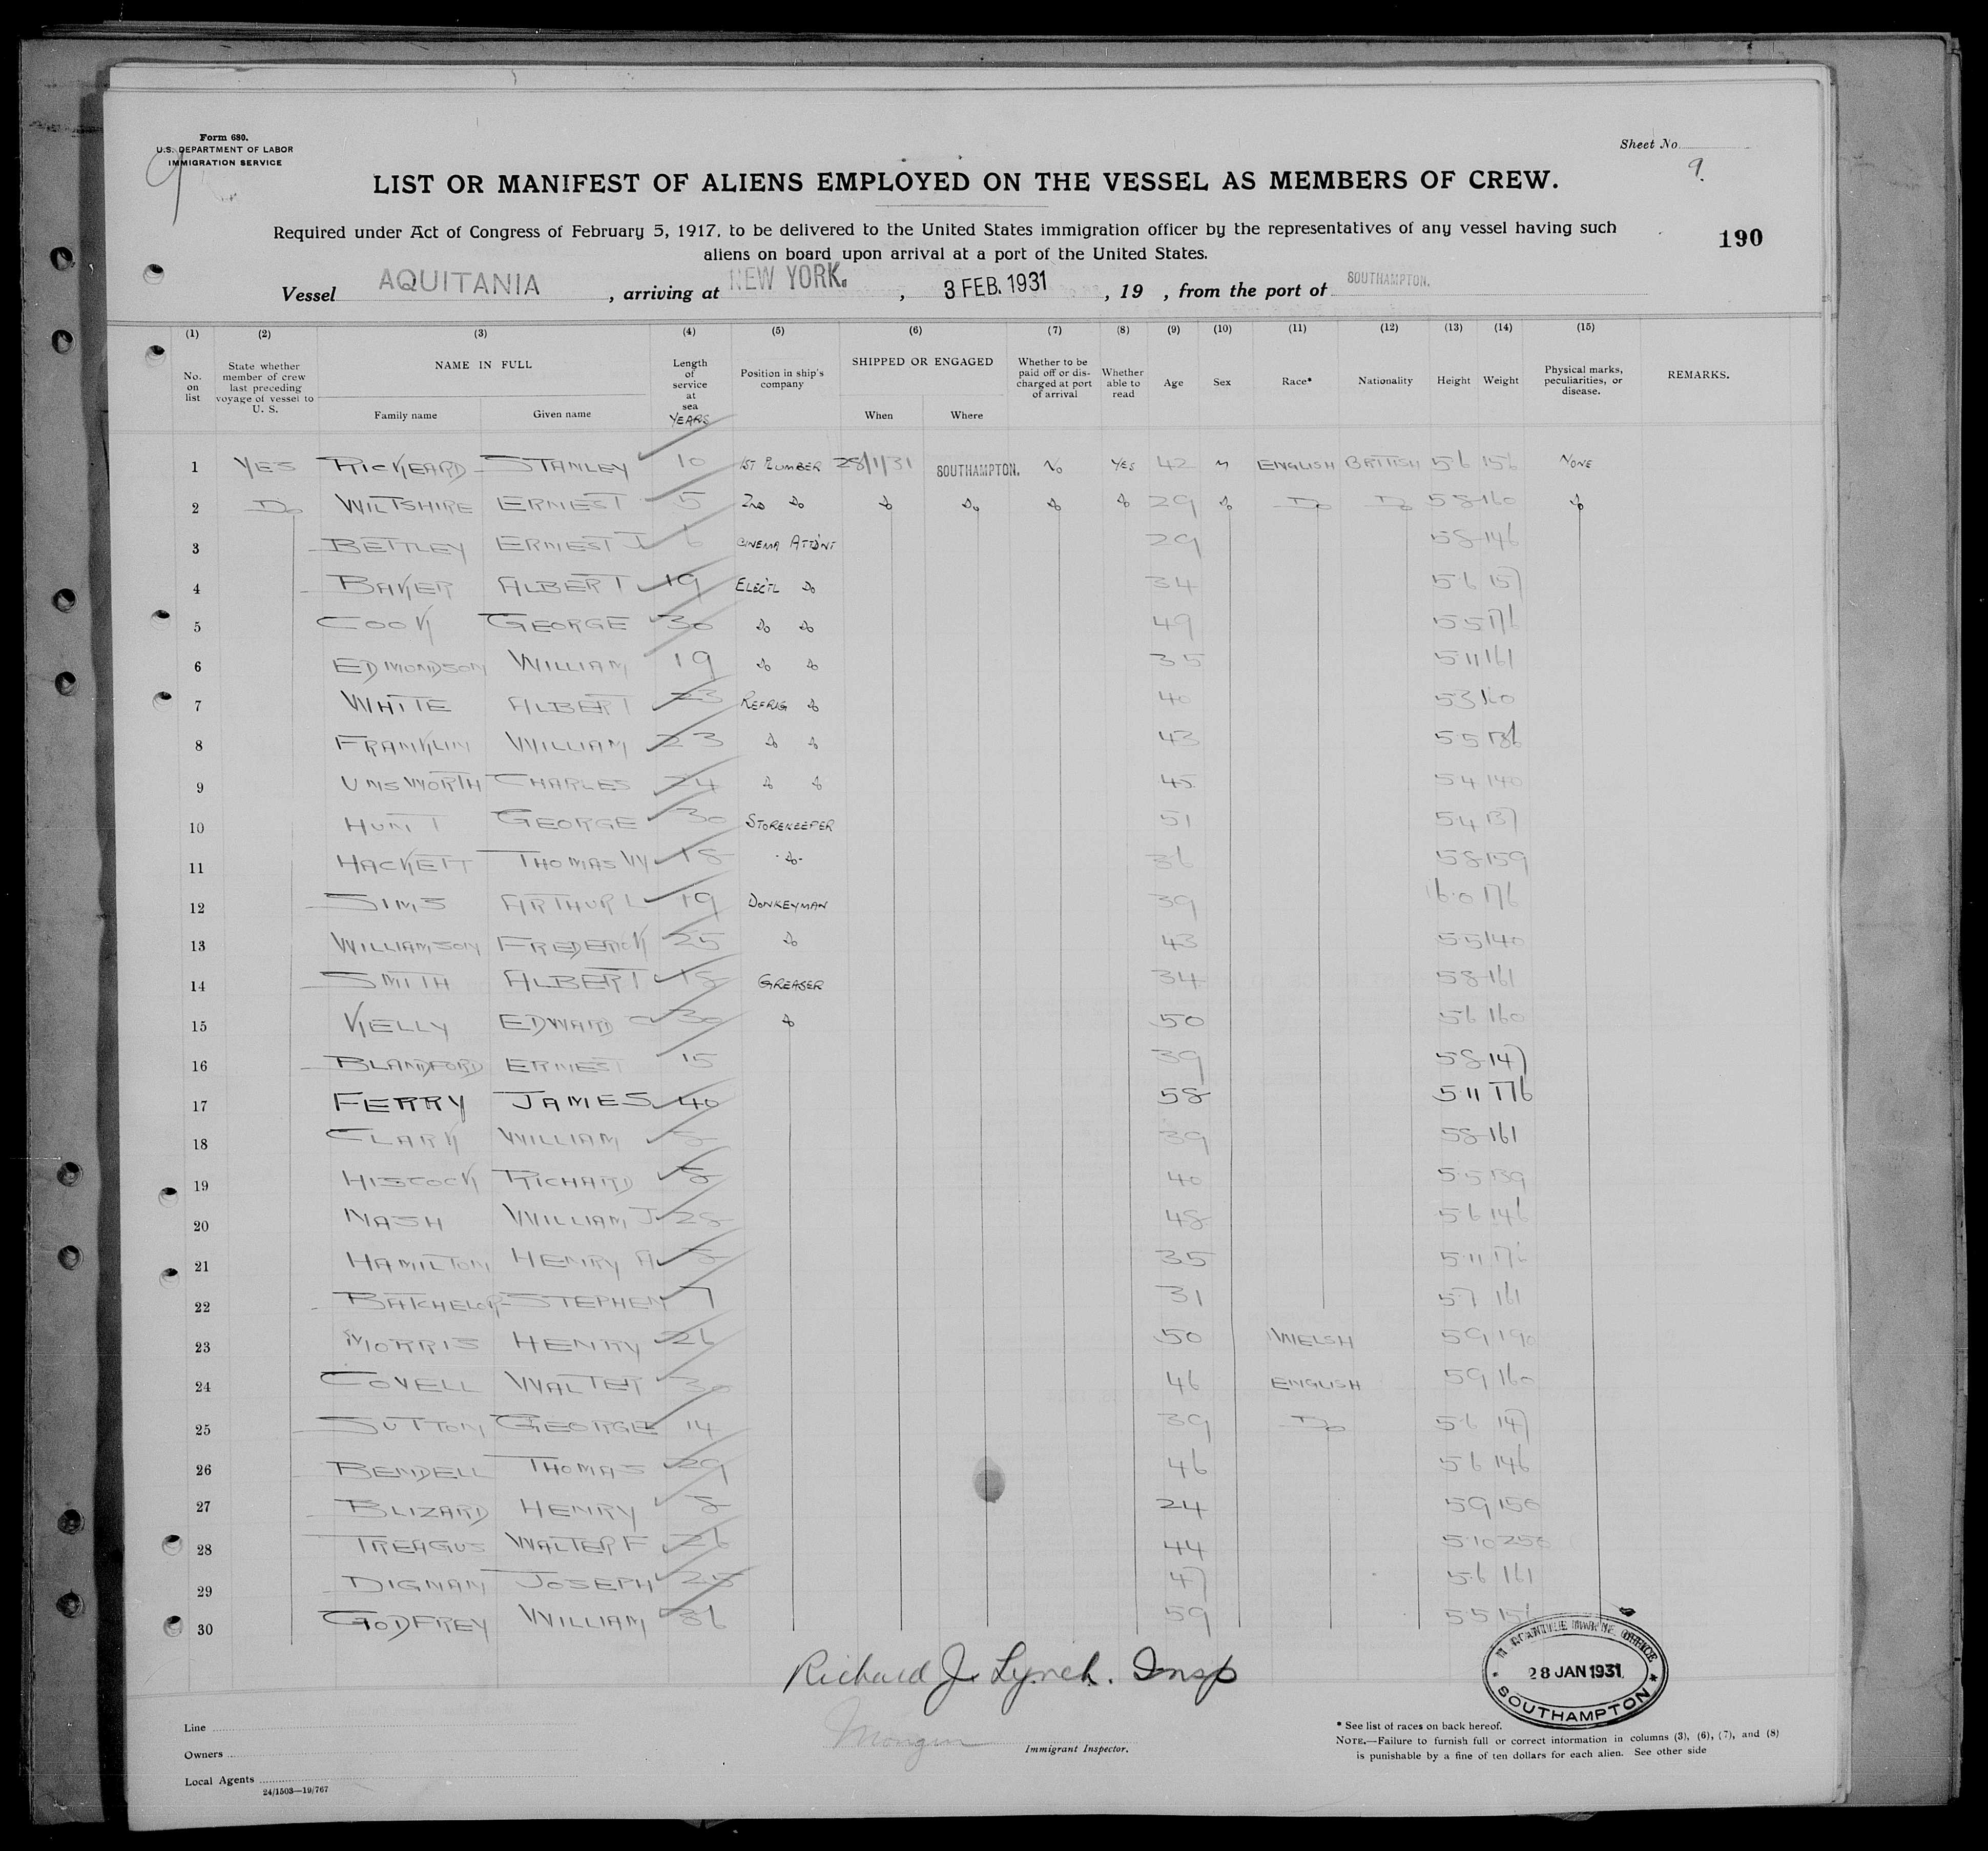 Form 680.
U.S. DEPARTMENT OF LABOR
IMMIGRATION SERVICE
9
Sheet No.
9.
LIST OR MANIFEST OF ALIENS EMPLOYED ON THE VESSEL AS MEMBERS OF CREW.
Required under Act of Congress of February 5, 1917, to be delivered to the United States immigration officer by the representatives of any vessel having such
aliens on board upon arrival at a port of the United States.
190
Vessel AQUITANIA , arriving at NEW YORK. , 3 FEB. 1931 , 19 , from the port of SOUTHAMPTON.
(1) (2) (3) (4) (5) (6) (7) (8) (9) (10) (11) (12) (13) (14) (15)
No. on list State whether member of crew last preceding voyage of vessel to U. S. NAME IN FULL Family name Given name Length of service at sea YEARS Position in ship's company SHIPPED OR ENGAGED When Where Whether to be paid off or discharged at port of arrival Whether able to read Age Sex Race* Nationality Height Weight Physical marks, peculiarities, or disease. REMARKS.
1 YES RICKEARD STANLEY 10 1ST PLUMBER 28/1/31 SOUTHAMPTON. NO YES 42 M ENGLISH BRITISH 5 6 156 NONE
2 Do WILTSHIRE ERNEST 5 2ND Do Do Do Do Do 29 Do Do Do 5 8 160 Do
3 BETTLEY ERNEST J 6 CINEMA ATT'DNT 29 5 8 146
4 BAKER ALBERT 19 ELECTL Do 34 5 6 157
5 COOK GEORGE 30 Do Do 49 5 5 176
6 EDMONDSON WILLIAM 19 Do Do 35 5 11 161
7 WHITE ALBERT 23 REFRIG Do 40 5 3 160
8 FRANKLIN WILLIAM 23 Do Do 43 5 5 136
9 UNSWORTH CHARLES 24 Do Do 45 5 4 140
10 HUNT GEORGE 30 STOREKEEPER 51 5 4 137
11 HACKETT THOMAS W 18 Do 36 5 8 159
12 SIMS ARTHUR L 19 DONKEYMAN 39 6 0 176
13 WILLIAMSON FREDERICK 25 Do 43 5 5 140
14 SMITH ALBERT 18 GREASER 34 5 8 161
15 KELLY EDWARD C 30 Do 50 5 6 160
16 BLANDFORD ERNEST 15 39 5 8 147
17 FERRY JAMES 40 58 5 11 176
18 CLARK WILLIAM 8 39 5 8 161
19 HISCOCK RICHARD 8 40 5 5 139
20 NASH WILLIAM J 28 48 5 6 146
21 HAMILTON HENRY A 8 35 5 11 176
22 BATCHELOR STEPHEN 7 31 5 7 161
23 MORRIS HENRY 26 50 WELSH 5 9 190
24 COVELL WALTER 30 46 ENGLISH 5 9 160
25 SUTTON GEORGE 14 39 Do 5 6 147
26 BENDELL THOMAS 29 46 5 6 146
27 BLIZARD HENRY 8 24 5 9 150
28 TREAGUS WALTER F 26 44 5 10 250
29 DIGNAN JOSEPH 25 47 5 6 161
30 GODFREY WILLIAM 36 59 5 5 156
Richard J. Lynch. Insp
MERCANTILE MARINE OFFICE
28 JAN 1931
SOUTHAMPTON
Line
Owners
Local Agents
24/1503—19/767
Immigrant Inspector.
* See list of races on back hereof.
NOTE.—Failure to furnish full or correct information in columns (3), (6), (7), and (8)
is punishable by a fine of ten dollars for each alien. See other side